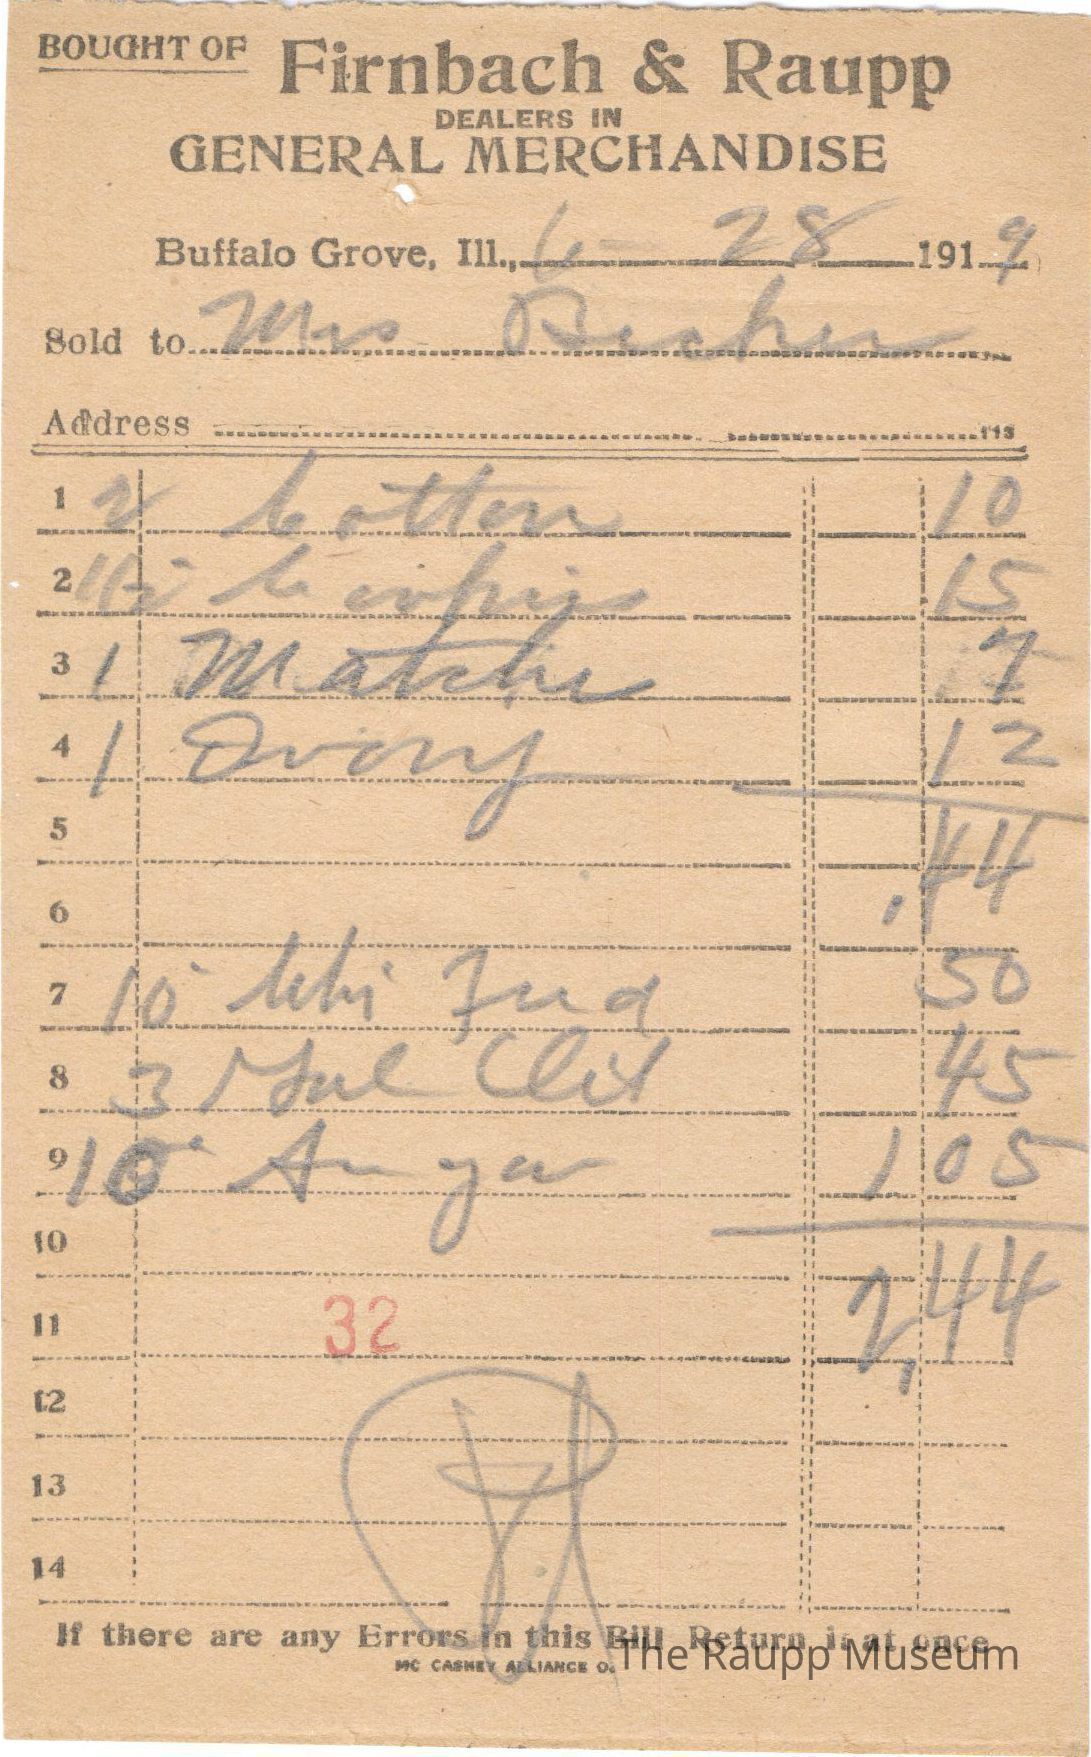 BOUGHT OF Firnbach & Raupp
DEALERS IN
GENERAL MERCHANDISE
Buffalo Grove, Ill., 6 - 28 1919
Sold to Mrs
Address 113
1 2 Cotton 10
2 15
3 1 Matche 7
4 1 Ivory 12
5
.44
6
7 10 Chi Fud 50
8 3 45
9 10 Sugar 1 05
10
2,44
11 32
12
13
14
If there are any Errors in this Bill Return it at once
MC CASKEY ALLIANCE O.
The Raupp Museum